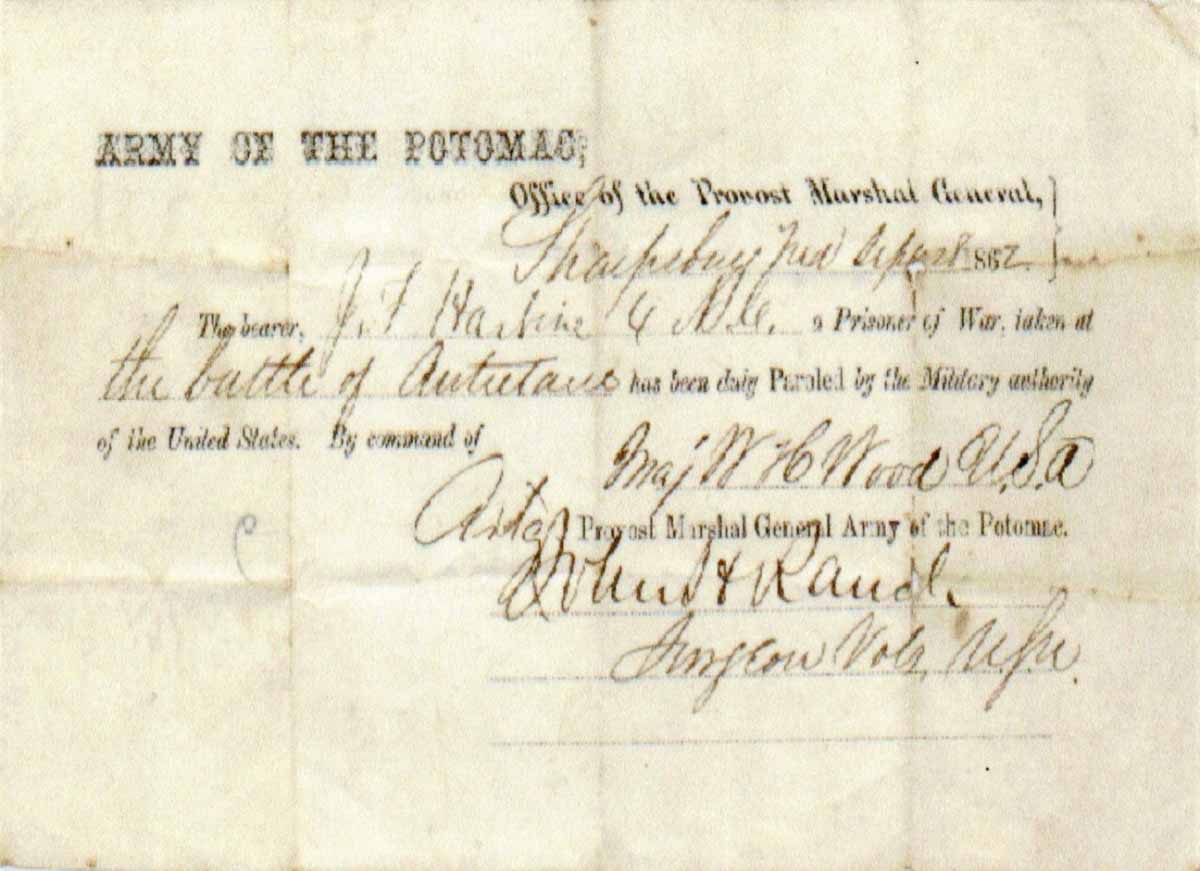 ARMY OF THE POTOMAC,
Office of the Provost Marshal General,
Sharpsburg Md 1862.
The bearer, J. F. N.C. a Prisoner of War, taken at
the battle of Antietam has been duly Paroled by the Military authority
of the United States. By command of
Maj W H Wood U.S.A
Provost Marshal General Army of the Potomac.
John H Rauch.
Surgeon Vols